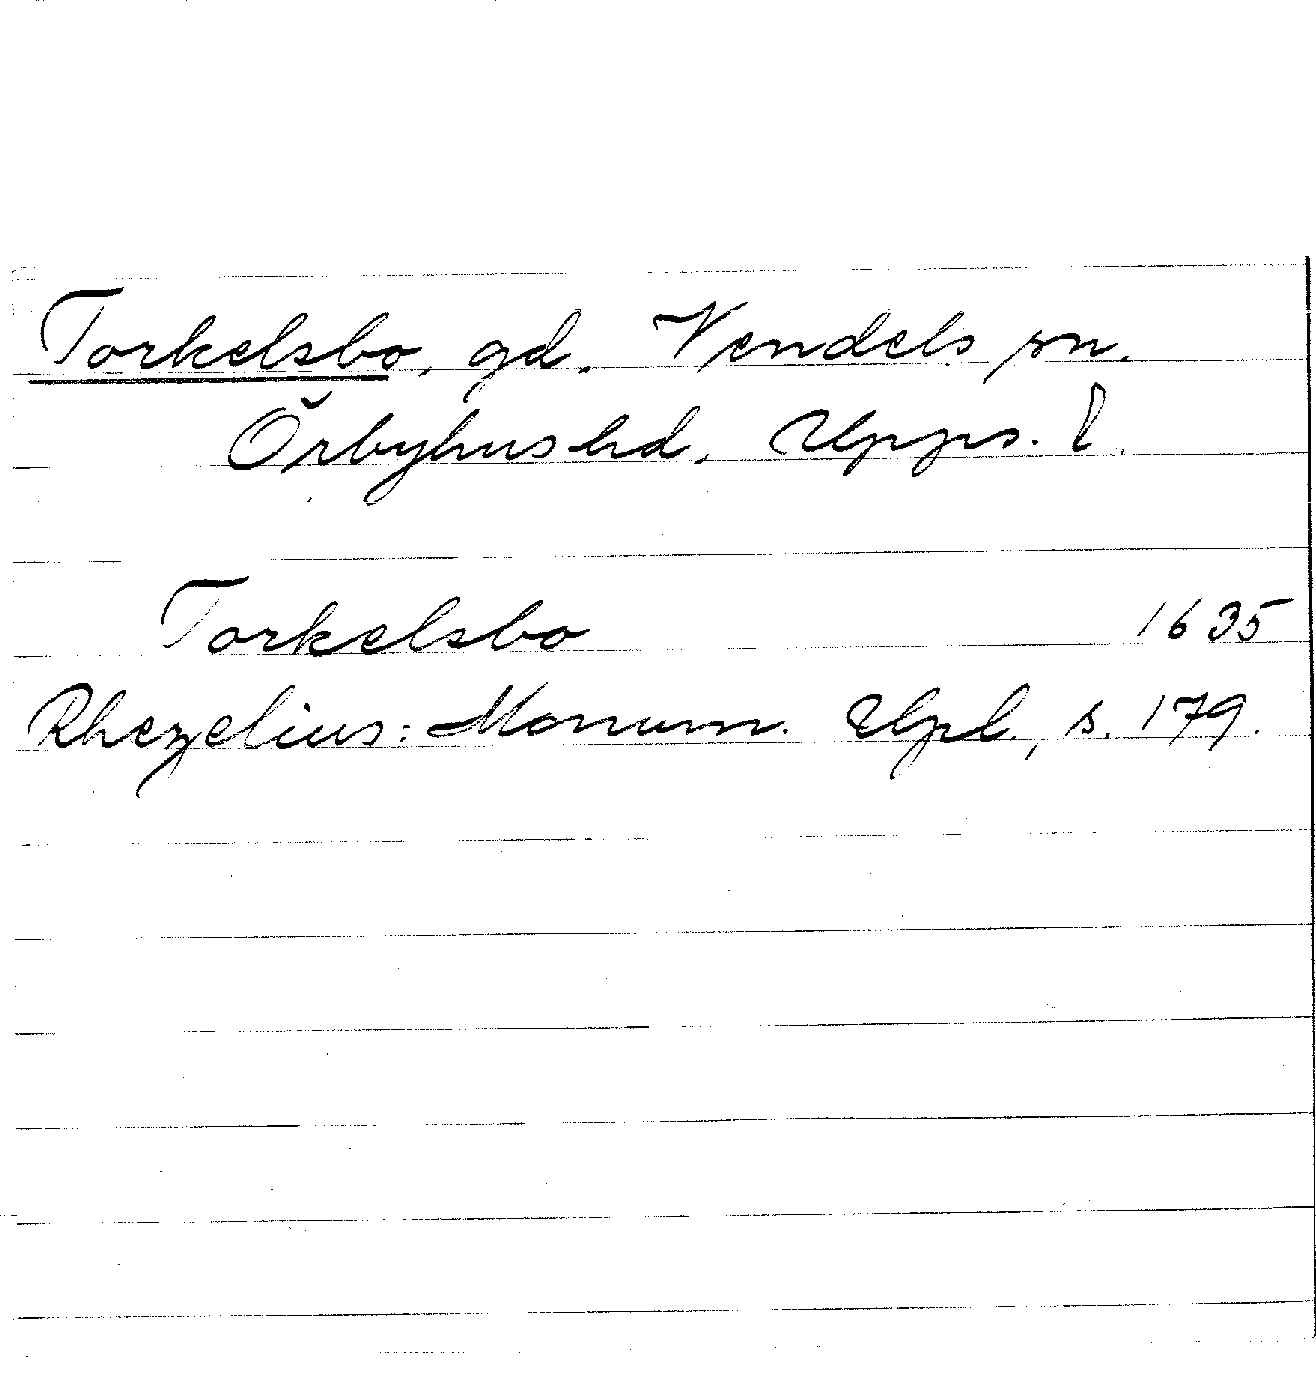 Torkelsbo, gd. Vendels sn.
Örbyhus hd. Upps. l.
Torkelsbo 1635
Rhezelius: Monum. Upl., s. 179.